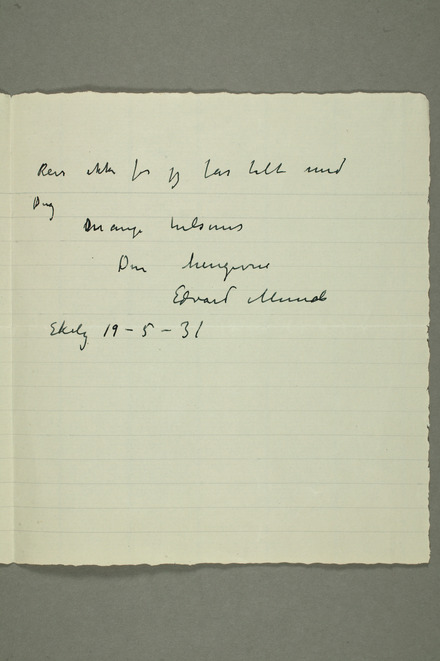 Reis ikke før jeg har talt med
Dig
Mange hilsener
Din hengivne
Edvard Munch
Ekely 19-5-31